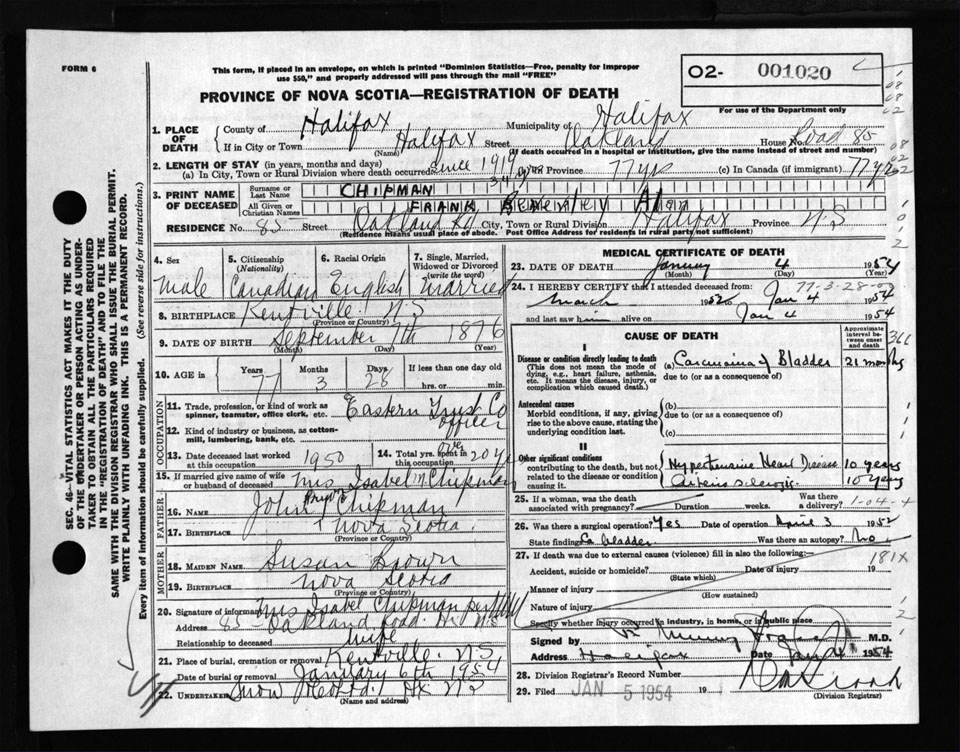 FORM 6
This form, if placed in an envelope, on which is printed "Dominion Statistics—Free, penalty for improper
use $50," and properly addressed will pass through the mail "FREE"
O2- 001020
For use of the Department only
PROVINCE OF NOVA SCOTIA—REGISTRATION OF DEATH
1. PLACE OF DEATH
County of Halifax Municipality of Halifax
If in City or Town Halifax Street Oakland Road House No. 85
(Name) (If death occurred in a hospital or institution, give the name instead of street and number)
2. LENGTH OF STAY (in years, months and days)
(a) In City, Town or Rural Division where death occurred since 1919 34 yrs In Province 77 yrs (c) In Canada (if immigrant) 77 yrs
3. PRINT NAME OF DECEASED
Surname or Last Name CHIPMAN
All Given or Christian Names FRANK BEVERLEY
RESIDENCE No. 85 Street Oakland Rd City, Town or Rural Division Halifax Province N.S
(Residence means usual place of abode. Post Office Address for residents in rural parts not sufficient)
4. Sex Male
5. Citizenship (Nationality) Canadian
6. Racial Origin English
7. Single, Married, Widowed or Divorced (write the word) Married
8. BIRTHPLACE Kentville N.S
(Province or Country)
9. DATE OF BIRTH September 7th 1876
(Month) (Day) (Year)
10. AGE in Years 77 Months 3 Days 28 If less than one day old
hrs. or min.
OCCUPATION
11. Trade, profession, or kind of work as spinner, teamster, office clerk, etc. Eastern Trust Co
officer
12. Kind of industry or business, as cotton-mill, lumbering, bank, etc.
13. Date deceased last worked at this occupation 1950
14. Total yrs. spent in this occupation over 20 yrs
15. If married give name of wife or husband of deceased Mrs Isabel M. Chipman
FATHER
16. NAME John Chipman
17. BIRTHPLACE Nova Scotia
(Province or Country)
MOTHER
18. MAIDEN NAME Susan Brown
19. BIRTHPLACE Nova Scotia
(Province or Country)
20. Signature of informant Mrs Isabel Chipman per
Address 85 Oakland Road. Hx N.S
Relationship to deceased wife
21. Place of burial, cremation or removal Kentville. N.S
Date of burial or removal January 6th 1954
22. Undertaker Snow Hx N.S
(Name and address)
MEDICAL CERTIFICATE OF DEATH
23. DATE OF DEATH January 4 1954
(Month) (Day) (Year)
77-3-28-
24. I HEREBY CERTIFY that I attended deceased from:
March 1952 to Jan 4 1954
and last saw him alive on Jan 4 1954
CAUSE OF DEATH
Approximate interval between onset and death
I
Disease or condition directly leading to death
(This does not mean the mode of dying, e.g., heart failure, asthenia, etc. It means the disease, injury, or complication which caused death.)
(a) Carcinoma of Bladder 21 months
due to (or as a consequence of)
Antecedent causes
Morbid conditions, if any, giving rise to the above cause, stating the underlying condition last.
(b)
due to (or as a consequence of)
(c)
II
Other significant conditions
contributing to the death, but not related to the disease or condition causing it.
Hypertensive Heart Disease 10 years
Arteriosclerosis 10 years
25. If a woman, was the death associated with pregnancy? Duration weeks. Was there a delivery?
26. Was there a surgical operation? Yes Date of operation April 3 1952
State findings Ca bladder Was there an autopsy? No
27. If death was due to external causes (violence) fill in also the following:
181X
Accident, suicide or homicide? Date of injury 19
(State which)
Manner of injury
(How sustained)
Nature of injury
Specify whether injury occurred in industry, in home, or in public place
Signed by M.D.
Address Halifax Date Jan 4 1954
28. Division Registrar's Record Number
29. Filed JAN 5 1954
(Division Registrar)
SEC. 46—VITAL STATISTICS ACT MAKES IT THE DUTY
OF THE UNDERTAKER OR PERSON ACTING AS UNDER-
TAKER TO OBTAIN ALL THE PARTICULARS REQUIRED
IN THE "REGISTRATION OF DEATH" AND TO FILE THE
SAME WITH THE DIVISION REGISTRAR WHO SHALL ISSUE THE BURIAL PERMIT.
WRITE PLAINLY WITH UNFADING INK. THIS IS A PERMANENT RECORD.
Every item of information should be carefully supplied. (See reverse side for instructions.)